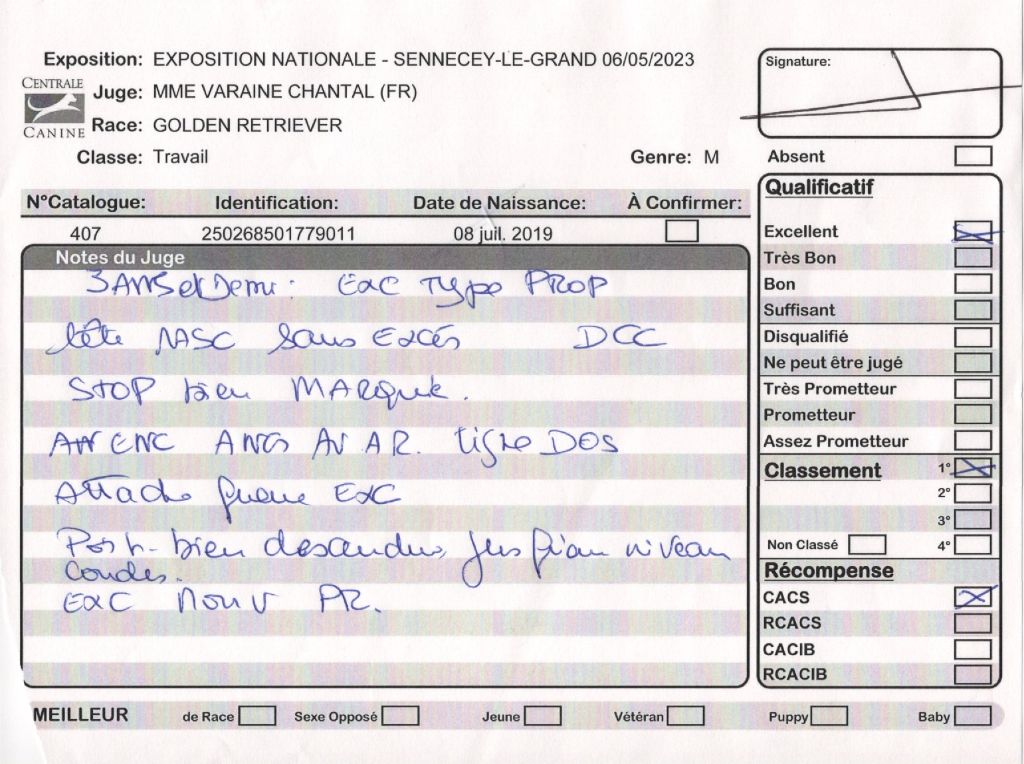 Exposition: EXPOSITION NATIONALE - SENNECEY-LE-GRAND 06/05/2023
CENTRALE CANINE
Juge: MME VARAINE CHANTAL (FR)
Race: GOLDEN RETRIEVER
Classe: Travail Genre: M
N°Catalogue: Identification: Date de Naissance: À Confirmer:
407 250268501779011 08 juil. 2019
Notes du Juge
3 ANS et Demi. EXC Type PROP
tête MASC Sans Excés DCC
STOP bien MARqué.
ANG AV AR. ligne DOS
Attache queue EXC
Poit. bien descendue, niveau
Coudes.
EXC Mouv PR.
Signature:
Absent
Qualificatif
Excellent
Très Bon
Bon
Suffisant
Disqualifié
Ne peut être jugé
Très Prometteur
Prometteur
Assez Prometteur
Classement 1°
2°
3°
Non Classé 4°
Récompense
CACS
RCACS
CACIB
RCACIB
MEILLEUR de Race Sexe Opposé Jeune Vétéran Puppy Baby